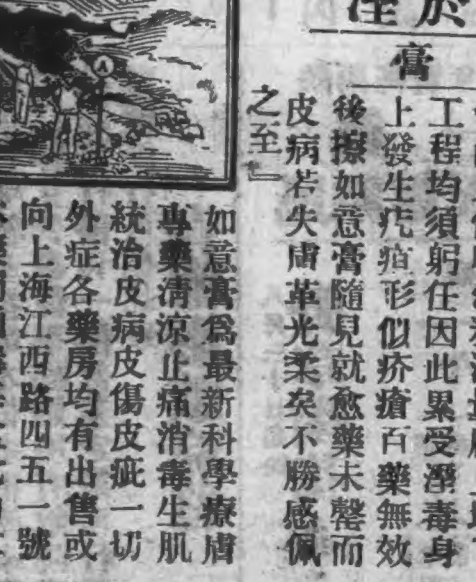 於淫
膏
工程均須躬任因此累受溼毒身
上發生疙疸形似疥瘡百藥無效
後擦如意膏隨見就愈藥未罄而
皮病若失膚革光柔矣不勝感佩
之至』
A
如意膏爲最新科學療膚
專藥淸涼止痛消毒生肌
統治皮病皮傷皮疵一切
外症各藥房均有出售或
向上海江西路四五一號